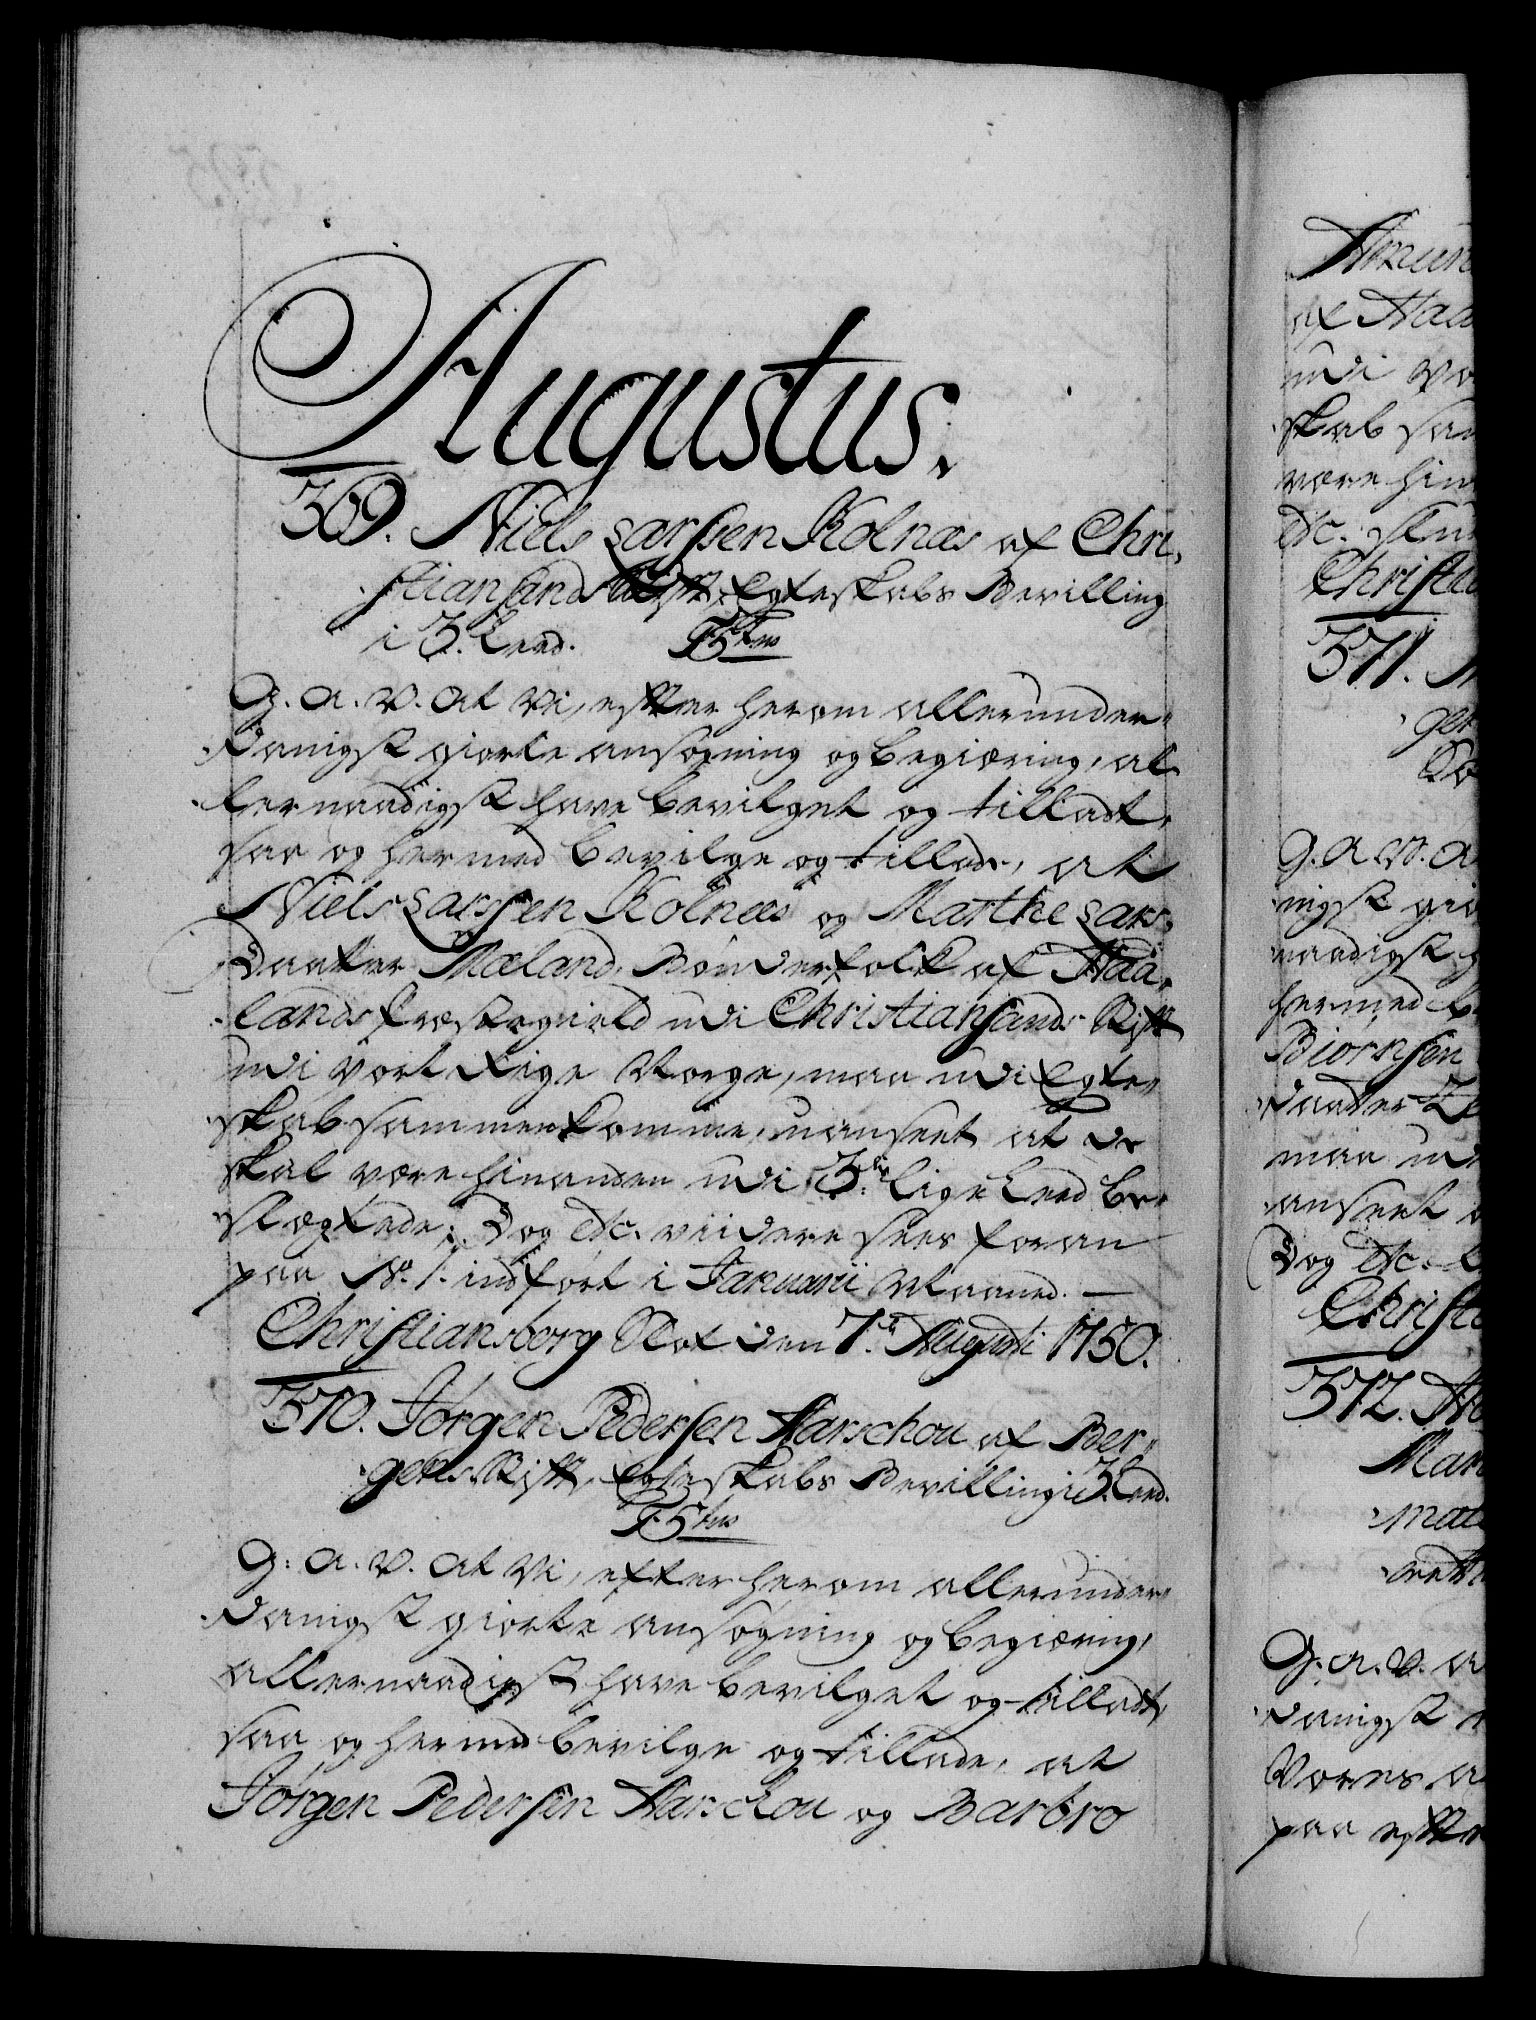 Augustus.
369. Niels Larssen Kolnæs af Chri,
stiansands Stift, Egteskabs Bevilling
i 3. Leed.
G. A. V. At Vi, efter herom allerunder,
danigst giorte ansøgning og begiæring, al
lernaadigst have bevilget og tilladt,
saa og hermed bevilge og tillade, at
Niels Larssen Kolnæs og Marthe Lars,
Daatter Mæland, Bønderfolk af Haa,
lands Præstegield udi Christiansands Stift
udi Vort Rige Norge, maa udi Egte,
skab sammenkomme, uanseet at de
skal være hinanden udi 3die lige Leed be,
slægtede; Dog etc. viidere sees foran
paa No. 1. indført i Januarii Maaned. —
Christiansborg Slot den 7de Augusti 1750.
370. Jørgen Pedersen Harschou af Ber,
gens Stift, Egteskabs Bevilling i 3. Leed.
G. A. V. At Vi, efter herom allerunder,
danigst giorte ansøgning og begiæring,
allernaadigst have bevilget og tilladt,
saa og hermed bevilge og tillade, at
Jørgen Pedersen Harschou og Barbro
af Haa
udi Vo
skab sam
være hin
etc.
Christia
371.
G. A. V. A
nigst gio
naadigst h
hermed be
Biørnsen
Daatter
maa ud
anseet
Dog etc.
Christi
372.
Mar
G. A. V. A
danigst
Vores
paa efter